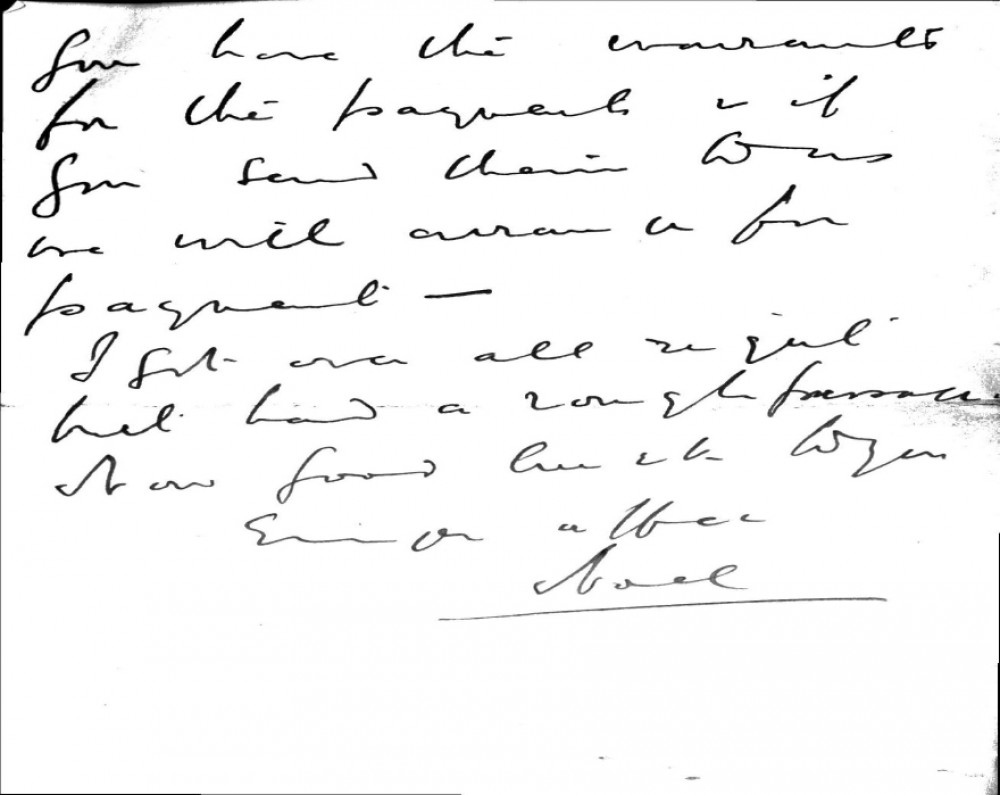 You have the warrants
for the payments & if
you send them to us
we will arrange for
payment —
I got over all right
but had a rough passage
Now good luck to you
Ever
Noel